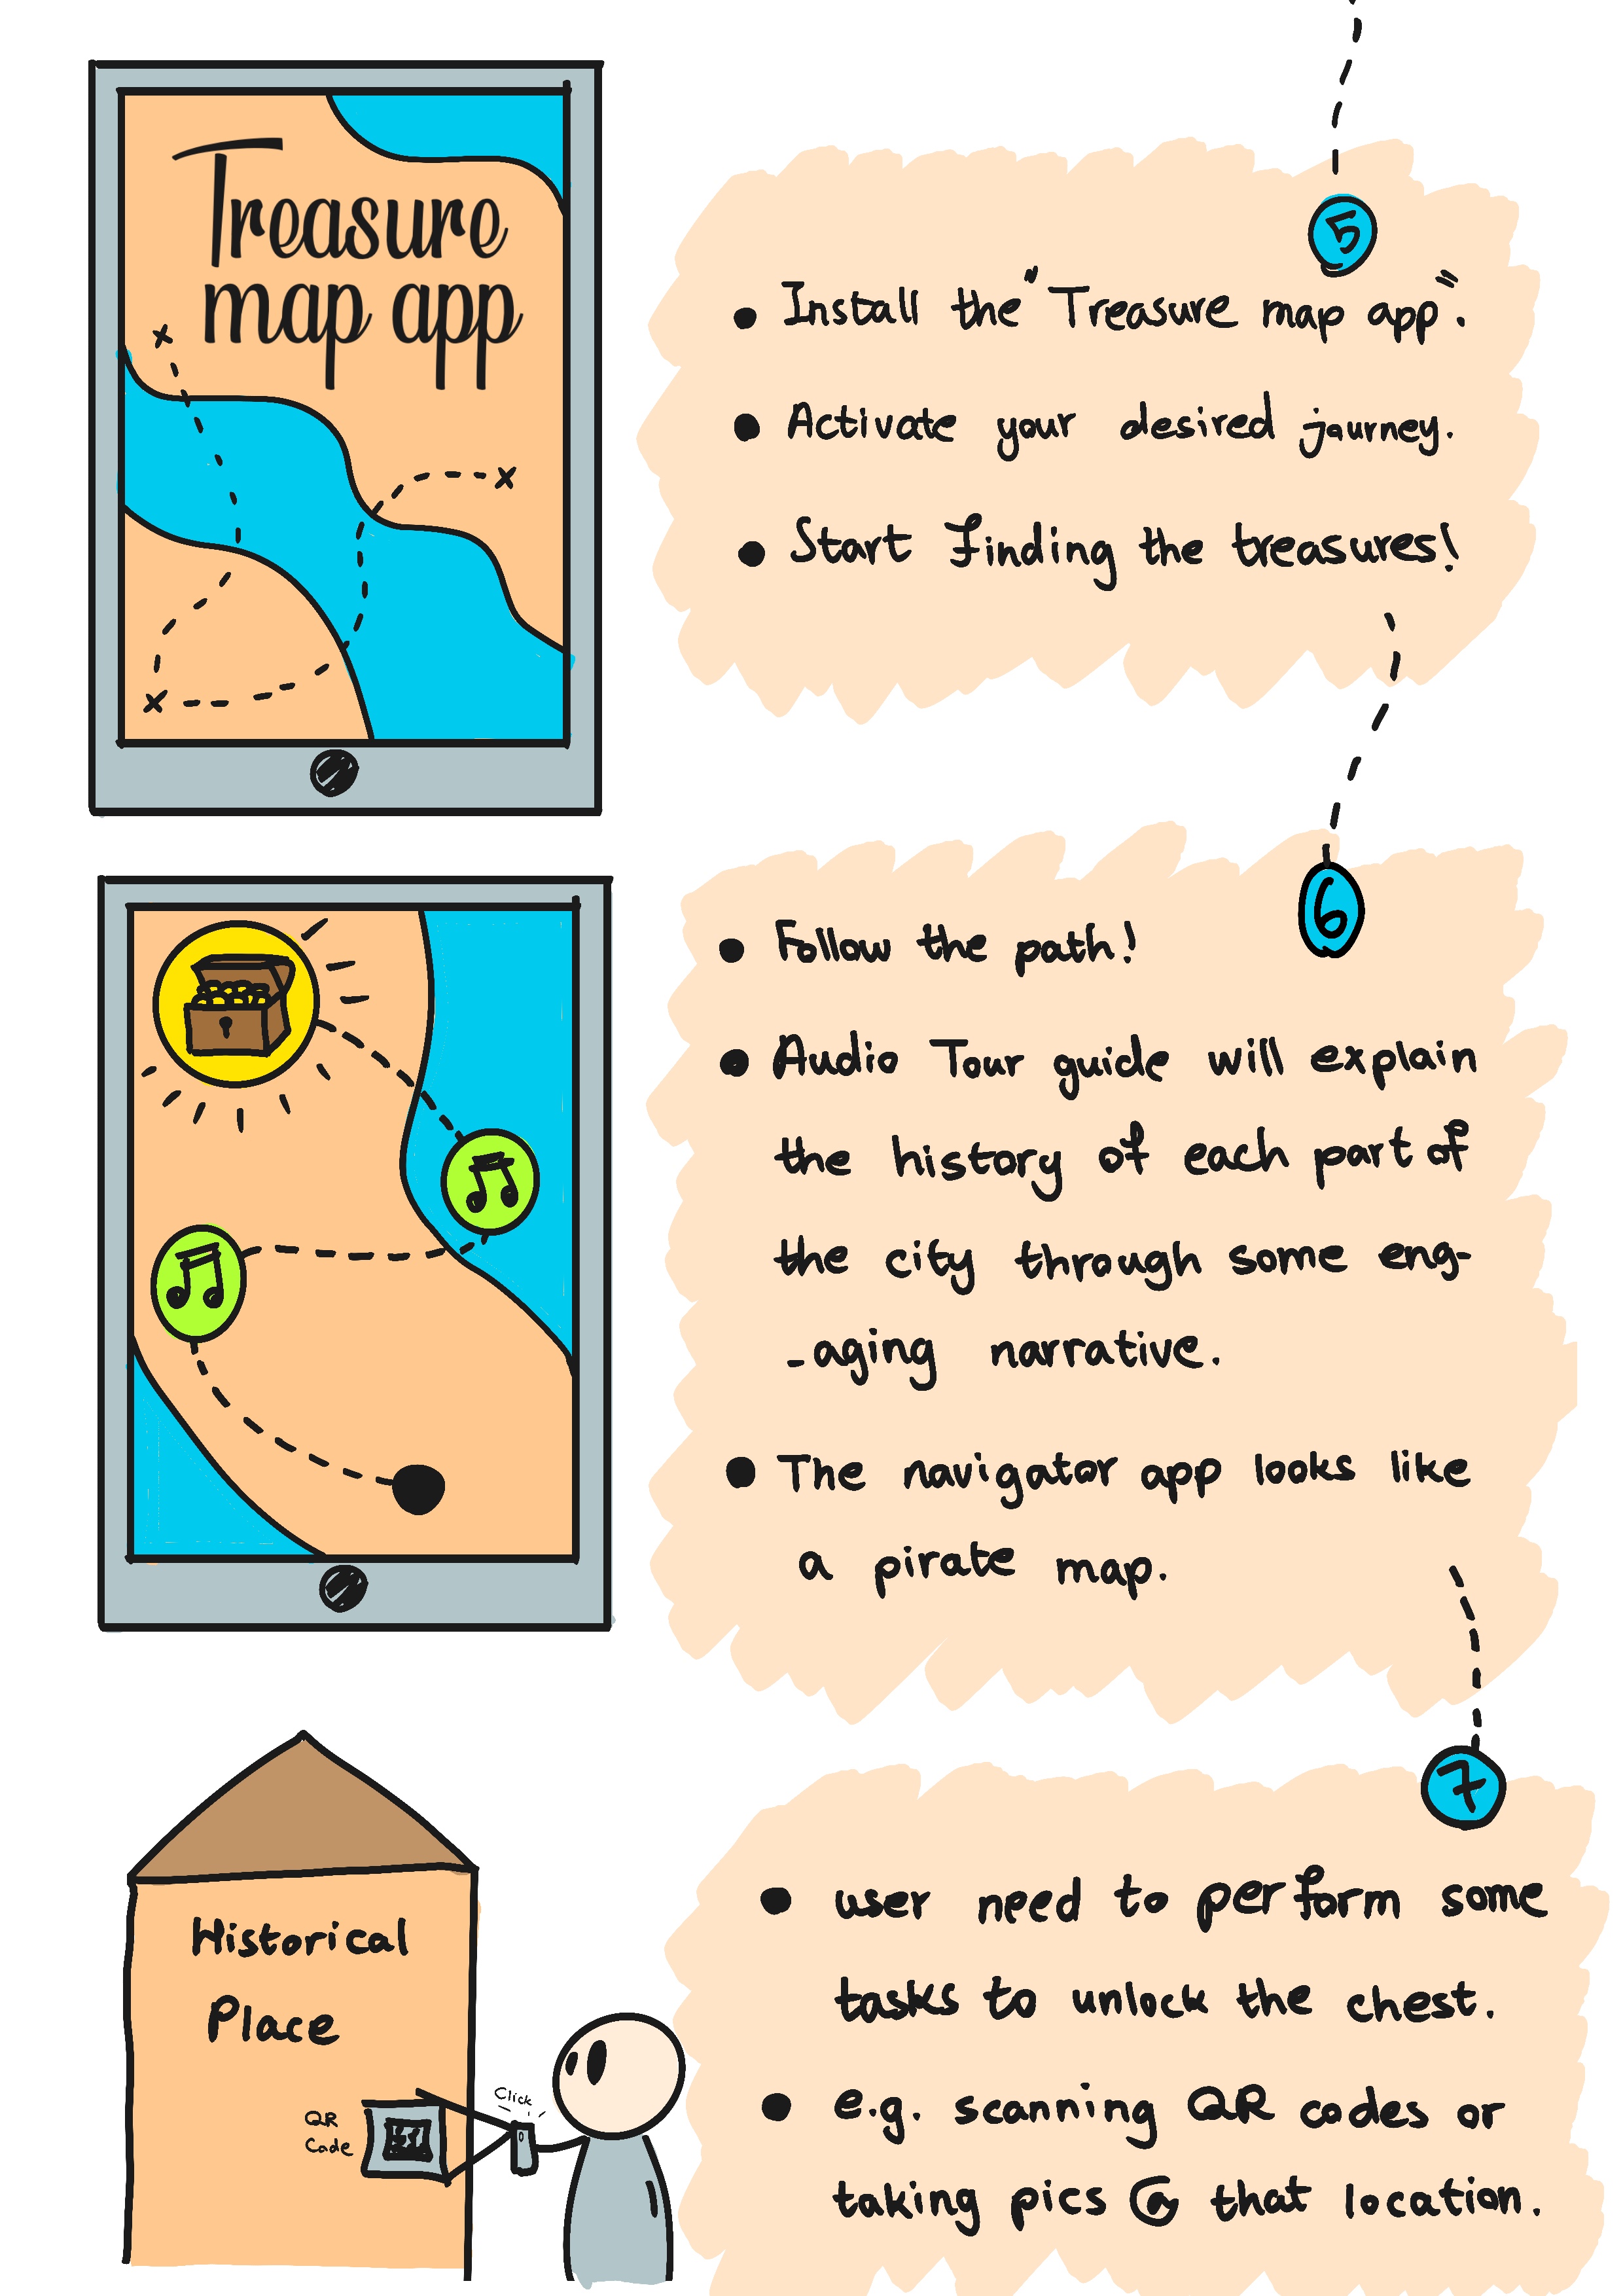 Treasure
map app
5
• Install the "Treasure map app".
• Activate your desired journey.
• Start Finding the treasures!
6
• Follow the path!
• Audio Tour guide will explain
the history of each part of
the city through some eng-
-aging narrative.
• The navigator app looks like
a pirate map.
7
• user need to perform some
tasks to unlock the chest.
• e.g. scanning QR codes or
taking pics @ that location.
Historical
Place
QR
Code
Click